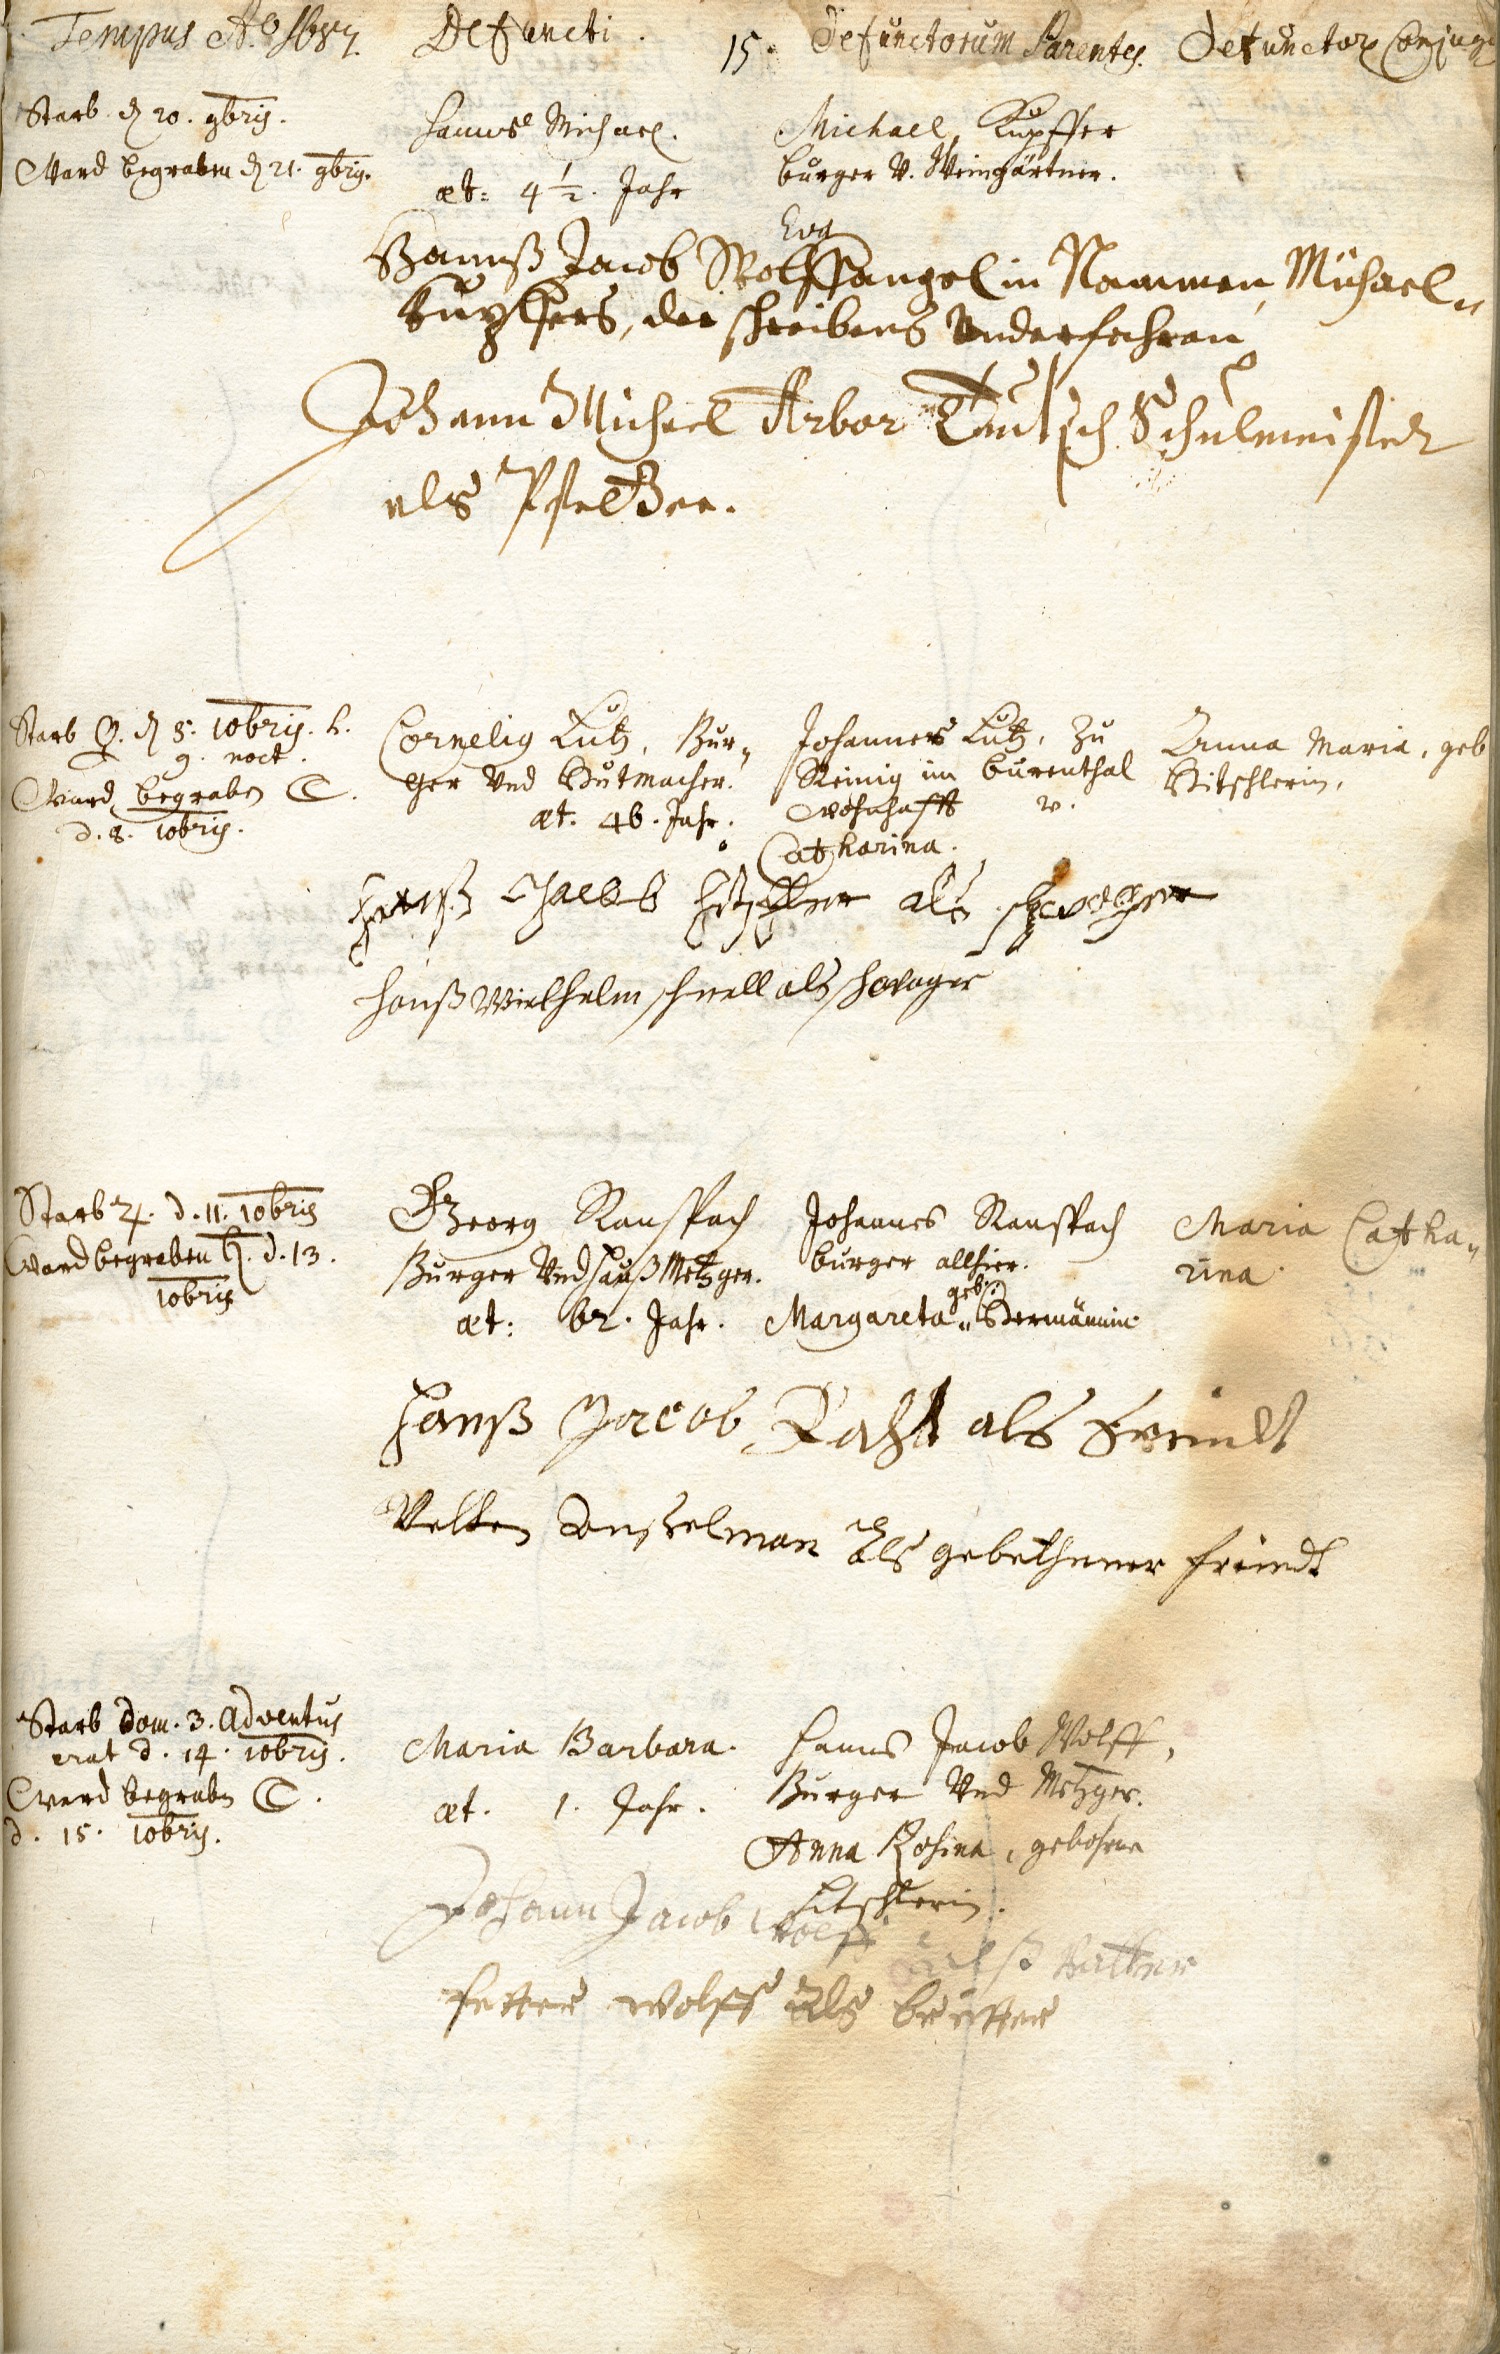 Tempus Aº. 1687. Defuncti. 15. Defunctorum Parentes. Defunctor. Conjuges
Starb d. 20. 9bris.
Ward begraben d. 21. 9bris.
Hannß Michael.
æt: 4 ½. Jahr
Michael Kupffer
burger v. Weingärtner.
Eva
Hannß Jacob Wolffangel in Nammen Michael
Kupffers, deß schreibens Vnderfahren
Johann Michael Arbor Teutsch Schulmeister
als Pfetter.
Starb d. 5. 10bris. h.
9. noct.
Ward begraben ☾.
d. 8. 10bris.
Cornelig Lutz, Bur-
ger Vnd Hutmacher.
æt. 46. Jahr.
Johannes Lutz, zu
Reinig im burenthal
wohnhafft v.
Catharina.
Anna Maria, geb
Hitschlerin.
Hanß Jacob Hitschler als schwecher
Hanß Wielhelm schnell als schwager
Starb ♃. d. 11. 10bris
Ward begraben ♄. d. 13.
10bris
Georg Ranspach
Burger Vnd Hauß Metzger.
æt: 62. Jahr.
Johannes Ranspach
burger allhier.
Margareta geb. Hermännin
Maria Catha-
rina
Hanß Jacob als freindt
Velten als gebethener freindt
Starb Dom. 3. Adventus
erat d. 14. 10bris.
Ward begraben ☾.
d. 15. 10bris.
Maria Barbara.
æt. 1. Jahr.
Hanns Jacob Wolff,
Burger Vnd Metzger.
Anna Rosina, gebohrne
Hitschlerin.
Johann Jacob Wolff alß Vatter
Petter Wolff als